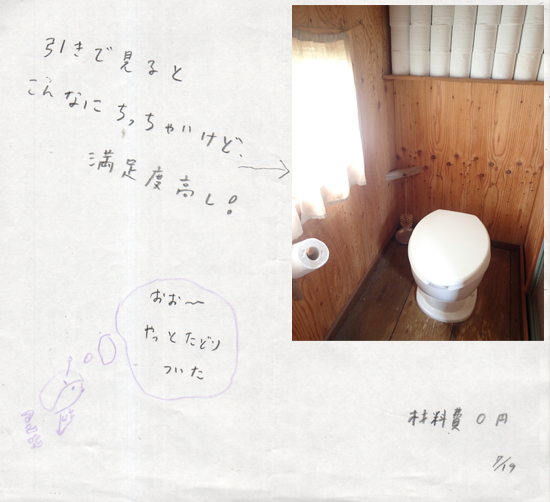 引きで見ると
こんなにちっちゃいけど、
満足度高し!
おお〜
やっとたどり
ついた
材料費0円
7/19